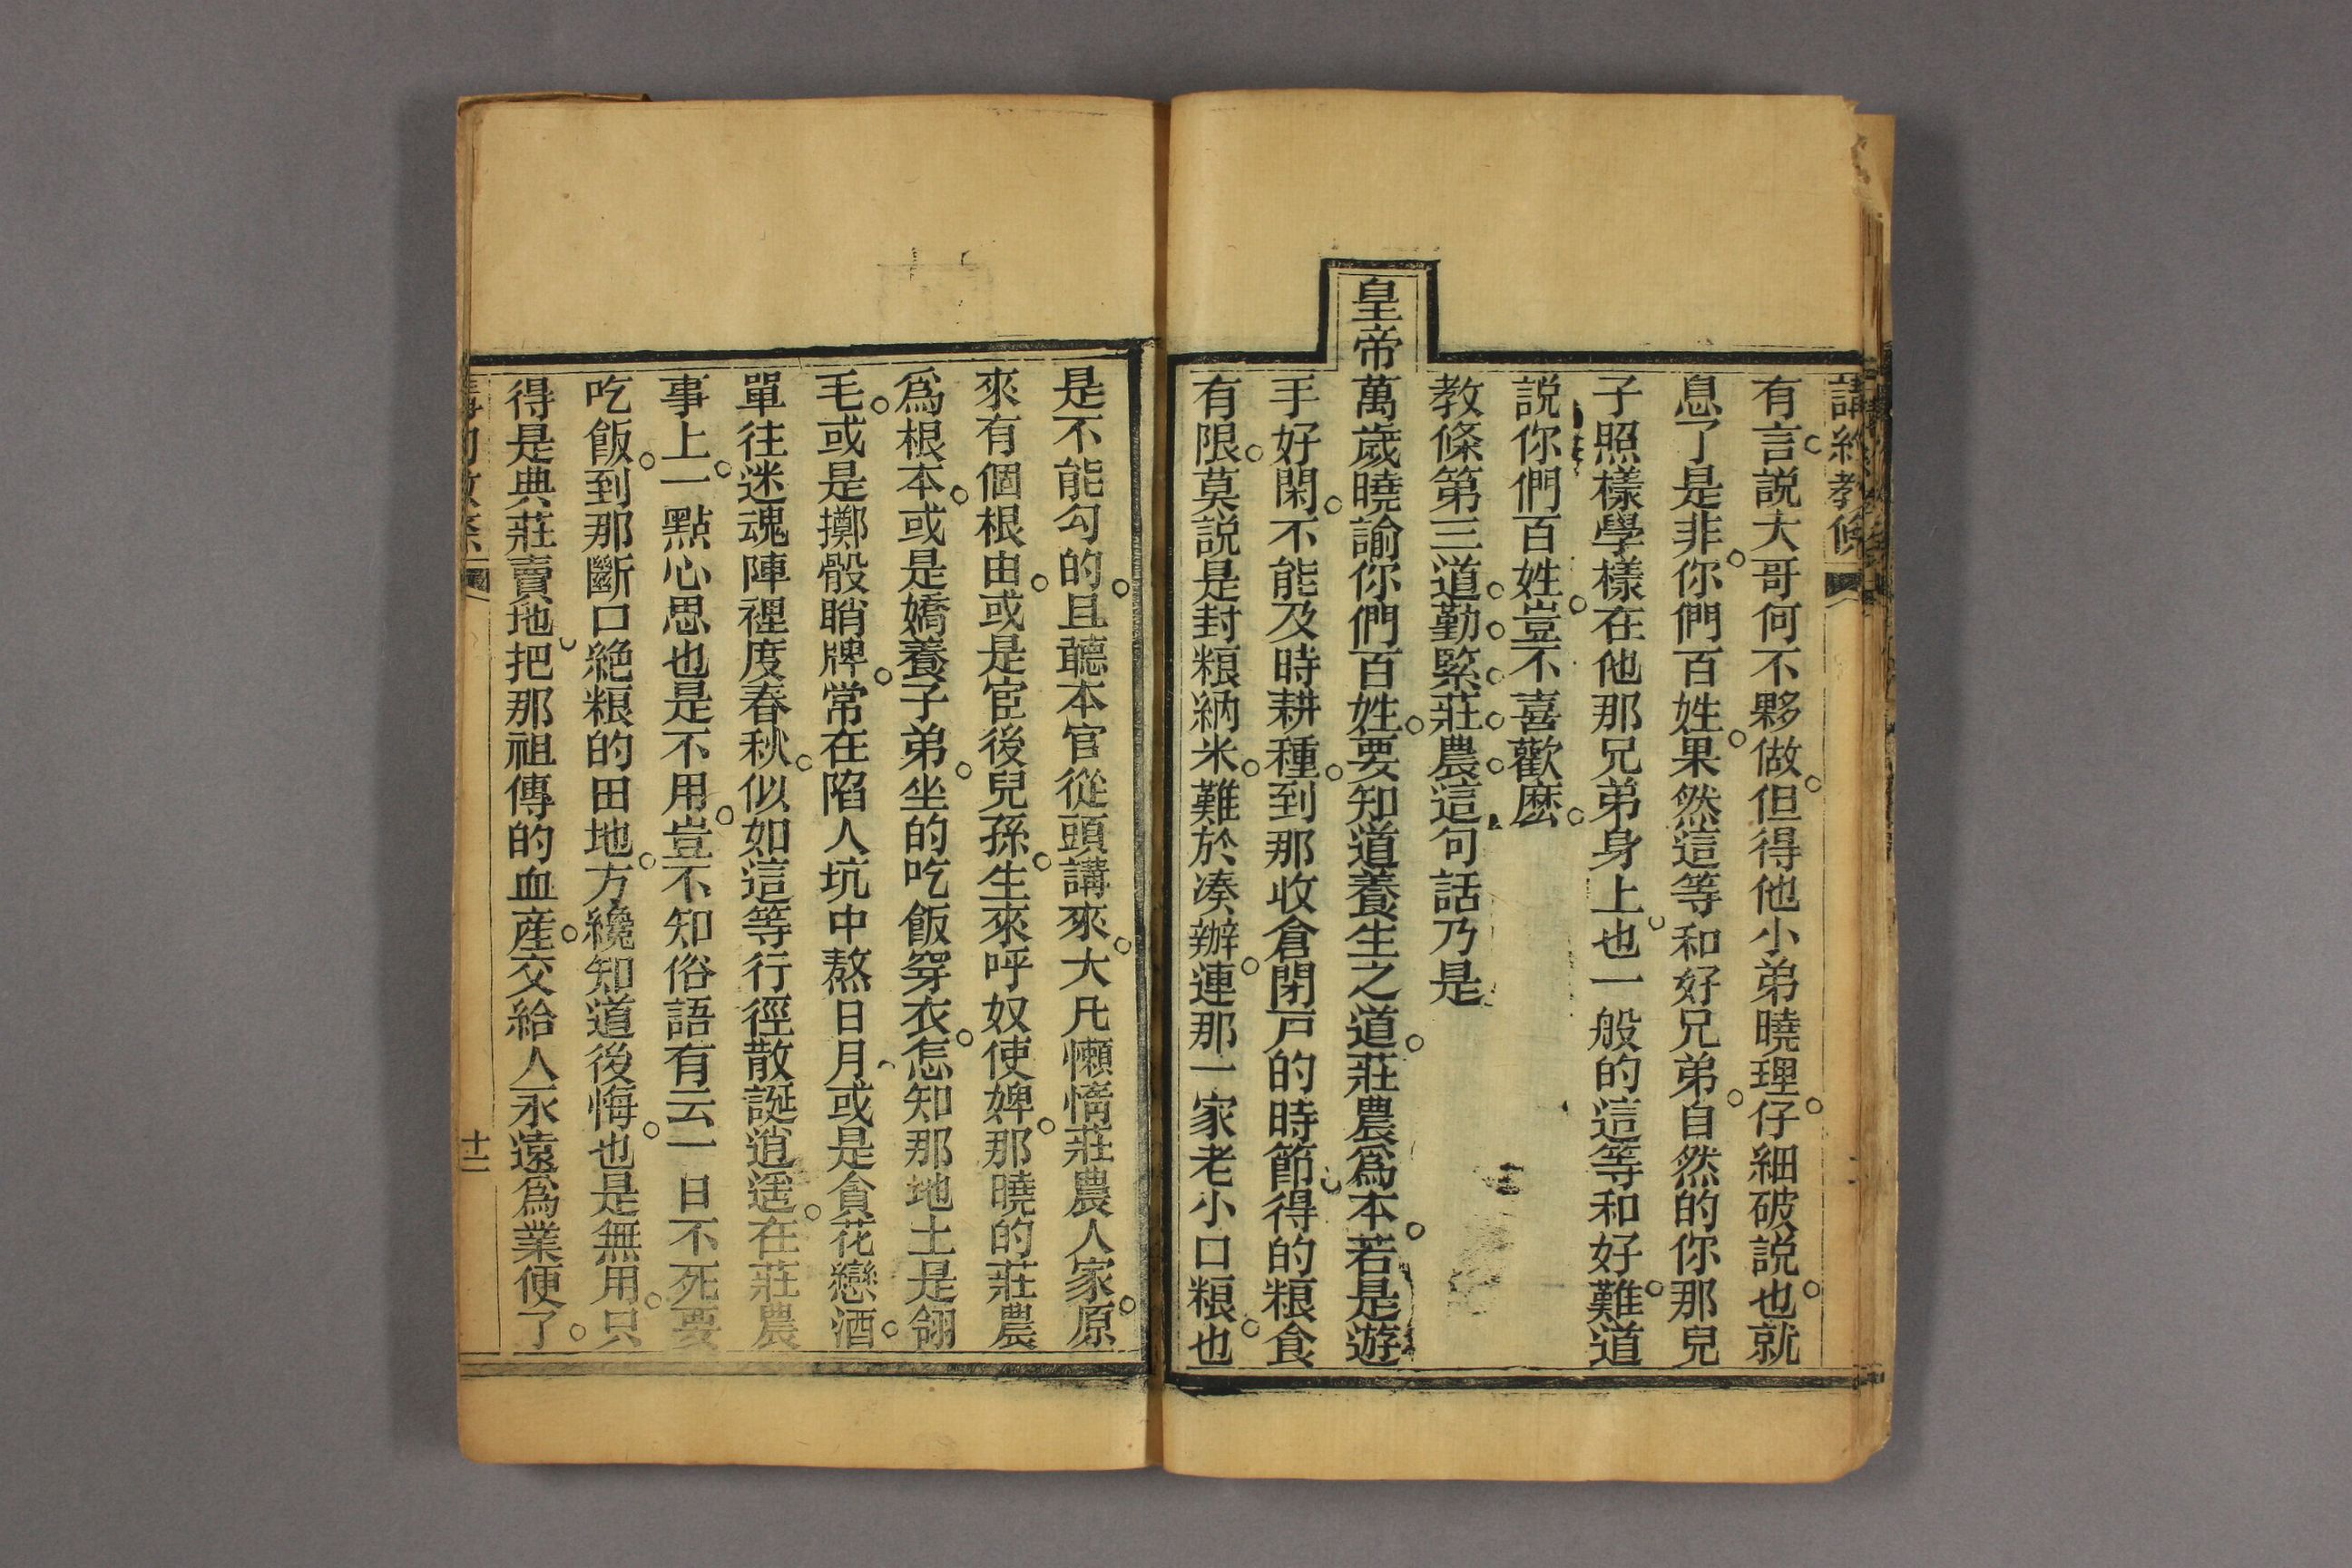 有言。説大哥何不夥做。但得他小弟曉理。仔細破説。也就
息了是非。你們百姓。果然這等和好兄弟。自然的你那兒
子照樣學樣在他那兄弟身上。也一般的這等和好。難道
説你們百姓。豈不喜歡麽。
教條第三道。勤。緊。莊。農。這句話乃是
皇帝萬歲曉諭你們百姓。要知道養生之道。莊農爲本。若是遊
手好閑。不能及時耕種。到那收倉閉戸的時節。得的粮食
有限。莫説是封粮納米。難於湊辦。連那一家老小口粮。也
是不能勾的。且聽本官從頭講來。大凡懶惰莊農人家。原
來有個根由。或是宦後兒孫。生來呼奴使婢。那曉的莊農
爲根本。或是嬌養子弟。坐的吃飯穿衣。怎知那地土是翎
毛。或是擲骰睄牌。常在陷人坑中熬日月。或是貪花戀酒。
單往迷魂陣裡度春秋。似如這等行徑散誕逍遥。在莊農
事上。一點心思也是不用。豈不知俗語有云一日不死要
吃飯。到那斷口絶粮的田地。方纔知道後悔。也是無用。只
得是典莊賣地。把那祖傳的血産。交給人永遠爲業便了。
十二